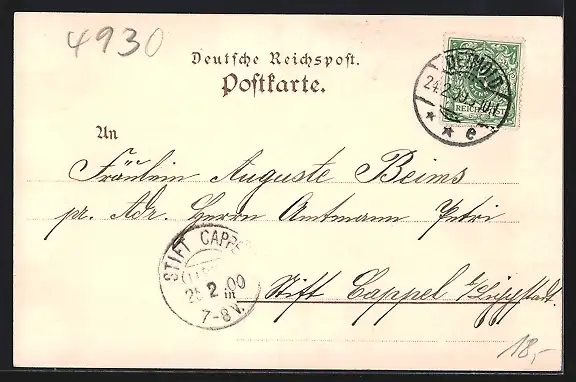 4930
Deutsche Reichspost.
Postkarte.
DETMOLD
24.2.
e
REICHSPOST
An
Fräulein Auguste Beims
pr. Adr. Herrn Amtmann Petri
STIFT CAPPEL
25 2 00
7-8V.
Stift Cappel b/Lippstadt.
18,-